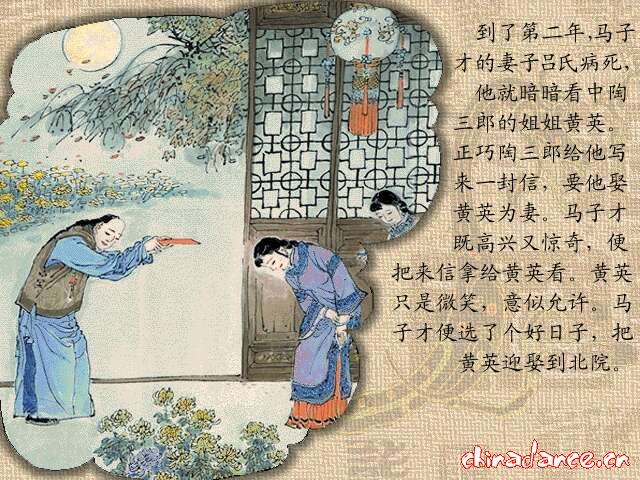 到了第二年,马子
才的妻子吕氏病死,
他就暗暗看中陶
三郎的姐姐黄英。
正巧陶三郎给他写
来一封信，要他娶
黄英为妻。马子才
既高兴又惊奇，便
把来信拿给黄英看。黄英
只是微笑，意似允许。马
子才便选了个好日子，把
黄英迎娶到北院。
chinadance.cn